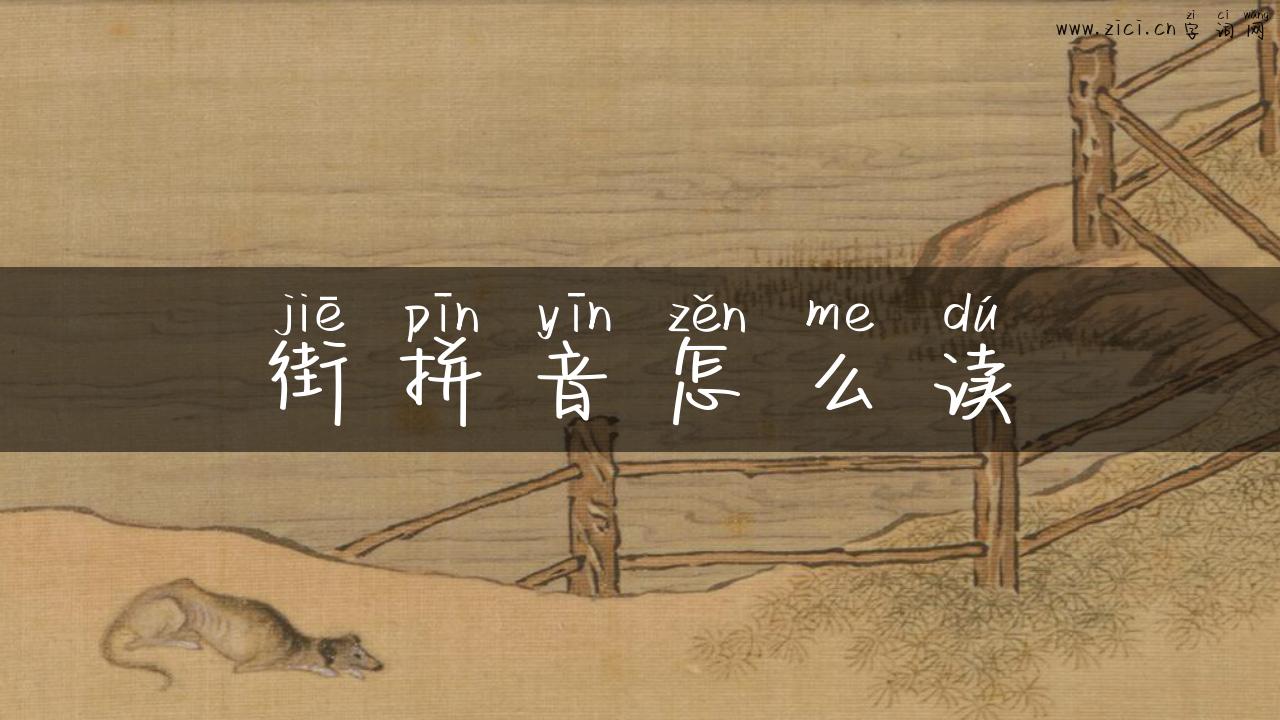 zi ci wang
www.zici.cn 字词网
jiē pīn yīn zěn me dú
街拼音怎么读